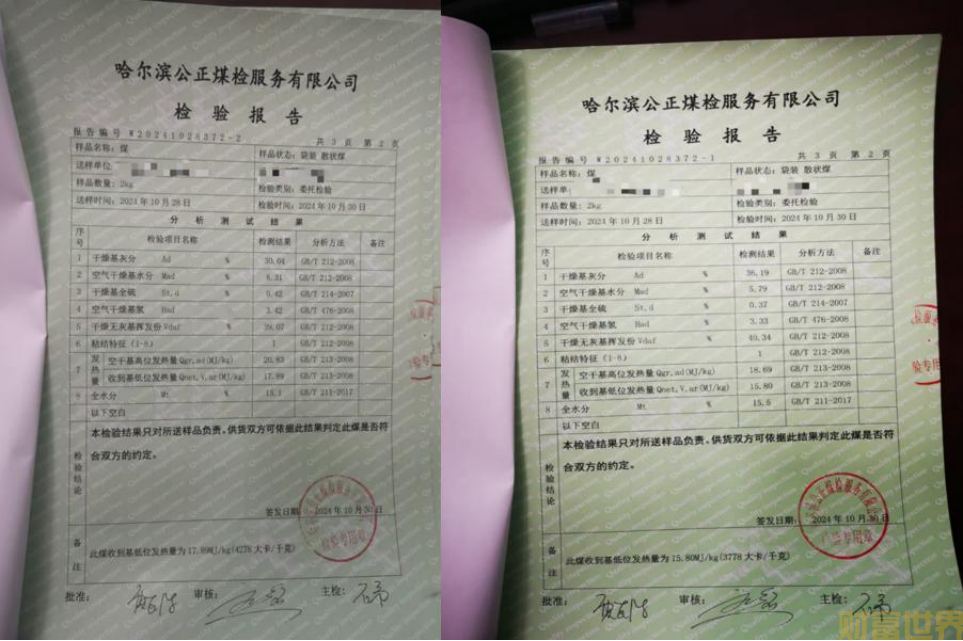 哈尔滨公正煤检服务有限公司
检 验 报 告
报告编号 W20241028372-2 共 3 页 第 2 页
样品名称：煤 样品状态：袋装 散状煤
送样单位
样品数量：2kg 检验类别：委托检验
送样时间：2024年10月28日 检验时间：2024年10月30日
分 析 测 试 结 果
序号 检验项目名称 检测结果 分析方法 备注
1 干燥基灰分 Ad % 30.64 GB/T 212-2008
2 空气干燥基水分 Mad % 6.31 GB/T 212-2008
3 干燥基全硫 St,d % 0.42 GB/T 214-2007
4 空气干燥基氢 Had % 3.42 GB/T 476-2008
5 干燥无灰基挥发份 Vdaf % 39.07 GB/T 212-2008
6 粘结特征（1-8） 1 GB/T 212-2008
7 发热量 空干基高位发热量Qgr,ad(MJ/kg) 20.83 GB/T 213-2008
收到基低位发热量Qnet,V,ar(MJ/kg) 17.89 GB/T 213-2008
8 全水分 Mt % 15.1 GB/T 211-2017
以下空白
检验结论 本检验结果只对所送样品负责。供货双方可依据此结果判定此煤是否符
合双方的约定。
签发日期： 2024年10月30日
备注 此煤收到基低位发热量为17.89MJ/kg(4278大卡/千克)
批准： 审核： 主检：
哈尔滨公正煤检服务有限公司
检 验 报 告
报告编号 W20241028372-1 共 3 页 第 2 页
样品名称：煤 样品状态：袋装 散状煤
送样单
样品数量：2kg 检验类别：委托检验
送样时间：2024年10月28日 检验时间：2024年10月30日
分 析 测 试 结 果
序号 检验项目名称 检测结果 分析方法 备注
1 干燥基灰分 Ad % 36.19 GB/T 212-2008
2 空气干燥基水分 Mad % 5.79 GB/T 212-2008
3 干燥基全硫 St,d % 0.37 GB/T 214-2007
4 空气干燥基氢 Had % 3.33 GB/T 476-2008
5 干燥无灰基挥发份 Vdaf % 40.34 GB/T 212-2008
6 粘结特征（1-8） 1 GB/T 212-2008
7 发热量 空干基高位发热量Qgr,ad(MJ/kg) 18.69 GB/T 213-2008
收到基低位发热量Qnet,V,ar(MJ/kg) 15.80 GB/T 213-2008
8 全水分 Mt % 15.5 GB/T 211-2017
以下空白
检验结论 本检验结果只对所送样品负责。供货双方可依据此结果判定此煤是否符
合双方的约定。
签发日期： 2024年10月30日
备注 此煤收到基低位发热量为15.80MJ/kg(3778大卡/千克)
批准： 审核： 主检：
财富世界